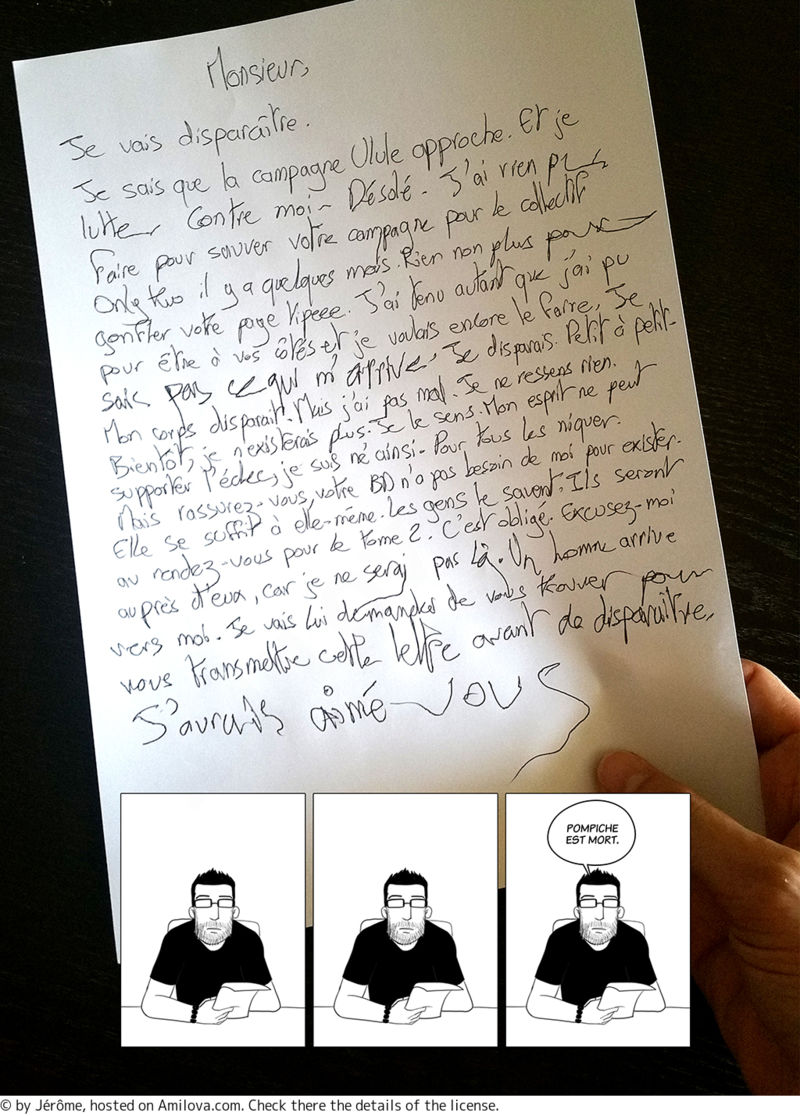 Monsieur,
Je vais disparaître.
Je sais que la campagne Ulule approche. Et je
lutte contre moi- Désolé. J'ai rien pu
faire pour sauver votre campagne pour le collectif
Only Two il y a quelques mois. Rien non plus pour
gonfler votre page Tipeee. J'ai tenu autant que j'ai pu
pour être à vos côtés et je voulais encore le faire. Je
sais pas ce qui m'arrive. Je disparais. Petit à petit.
Mon corps disparait. Mais j'ai pas mal. Je ne ressens rien.
Bientôt, je n'existerais plus. Je le sens. Mon esprit ne peut
supporter l'échec, je suis né ainsi. Pour tous les niquer.
Mais rassurez-vous, votre BD n'a pas besoin de moi pour exister.
Elle se suffit à elle-même. Les gens le savent. Ils seront
au rendez-vous pour le tome 2. C'est obligé. Excusez-moi
auprès d'eux, car je ne serai pas là. Un homme arrive
vers moi. Je vais lui demander de vous trouver pour
vous transmettre cette lettre avant de disparaître.
J'aurais aimé vous
POMPICHE
EST MORT.
© by Jérôme, hosted on Amilova.com. Check there the details of the license.